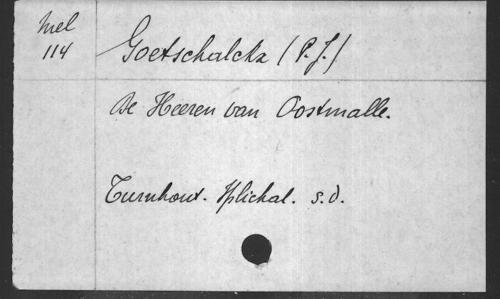 Mel
114
Goetschalckx (P.J.)
De Heeren van Oostmalle.
Turnhout. Splichal. s.d.